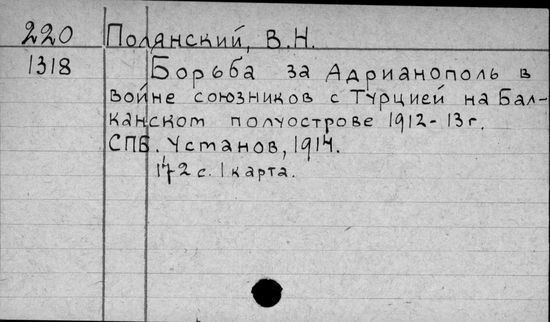 220 Полянский, В.Н.
1318 Борьба за Адрианополь в
войне союзников с Турцией на Бал-
канском полуострове 1912-13г.
СПБ. Установ, 1914.
172 с. 1 карта.